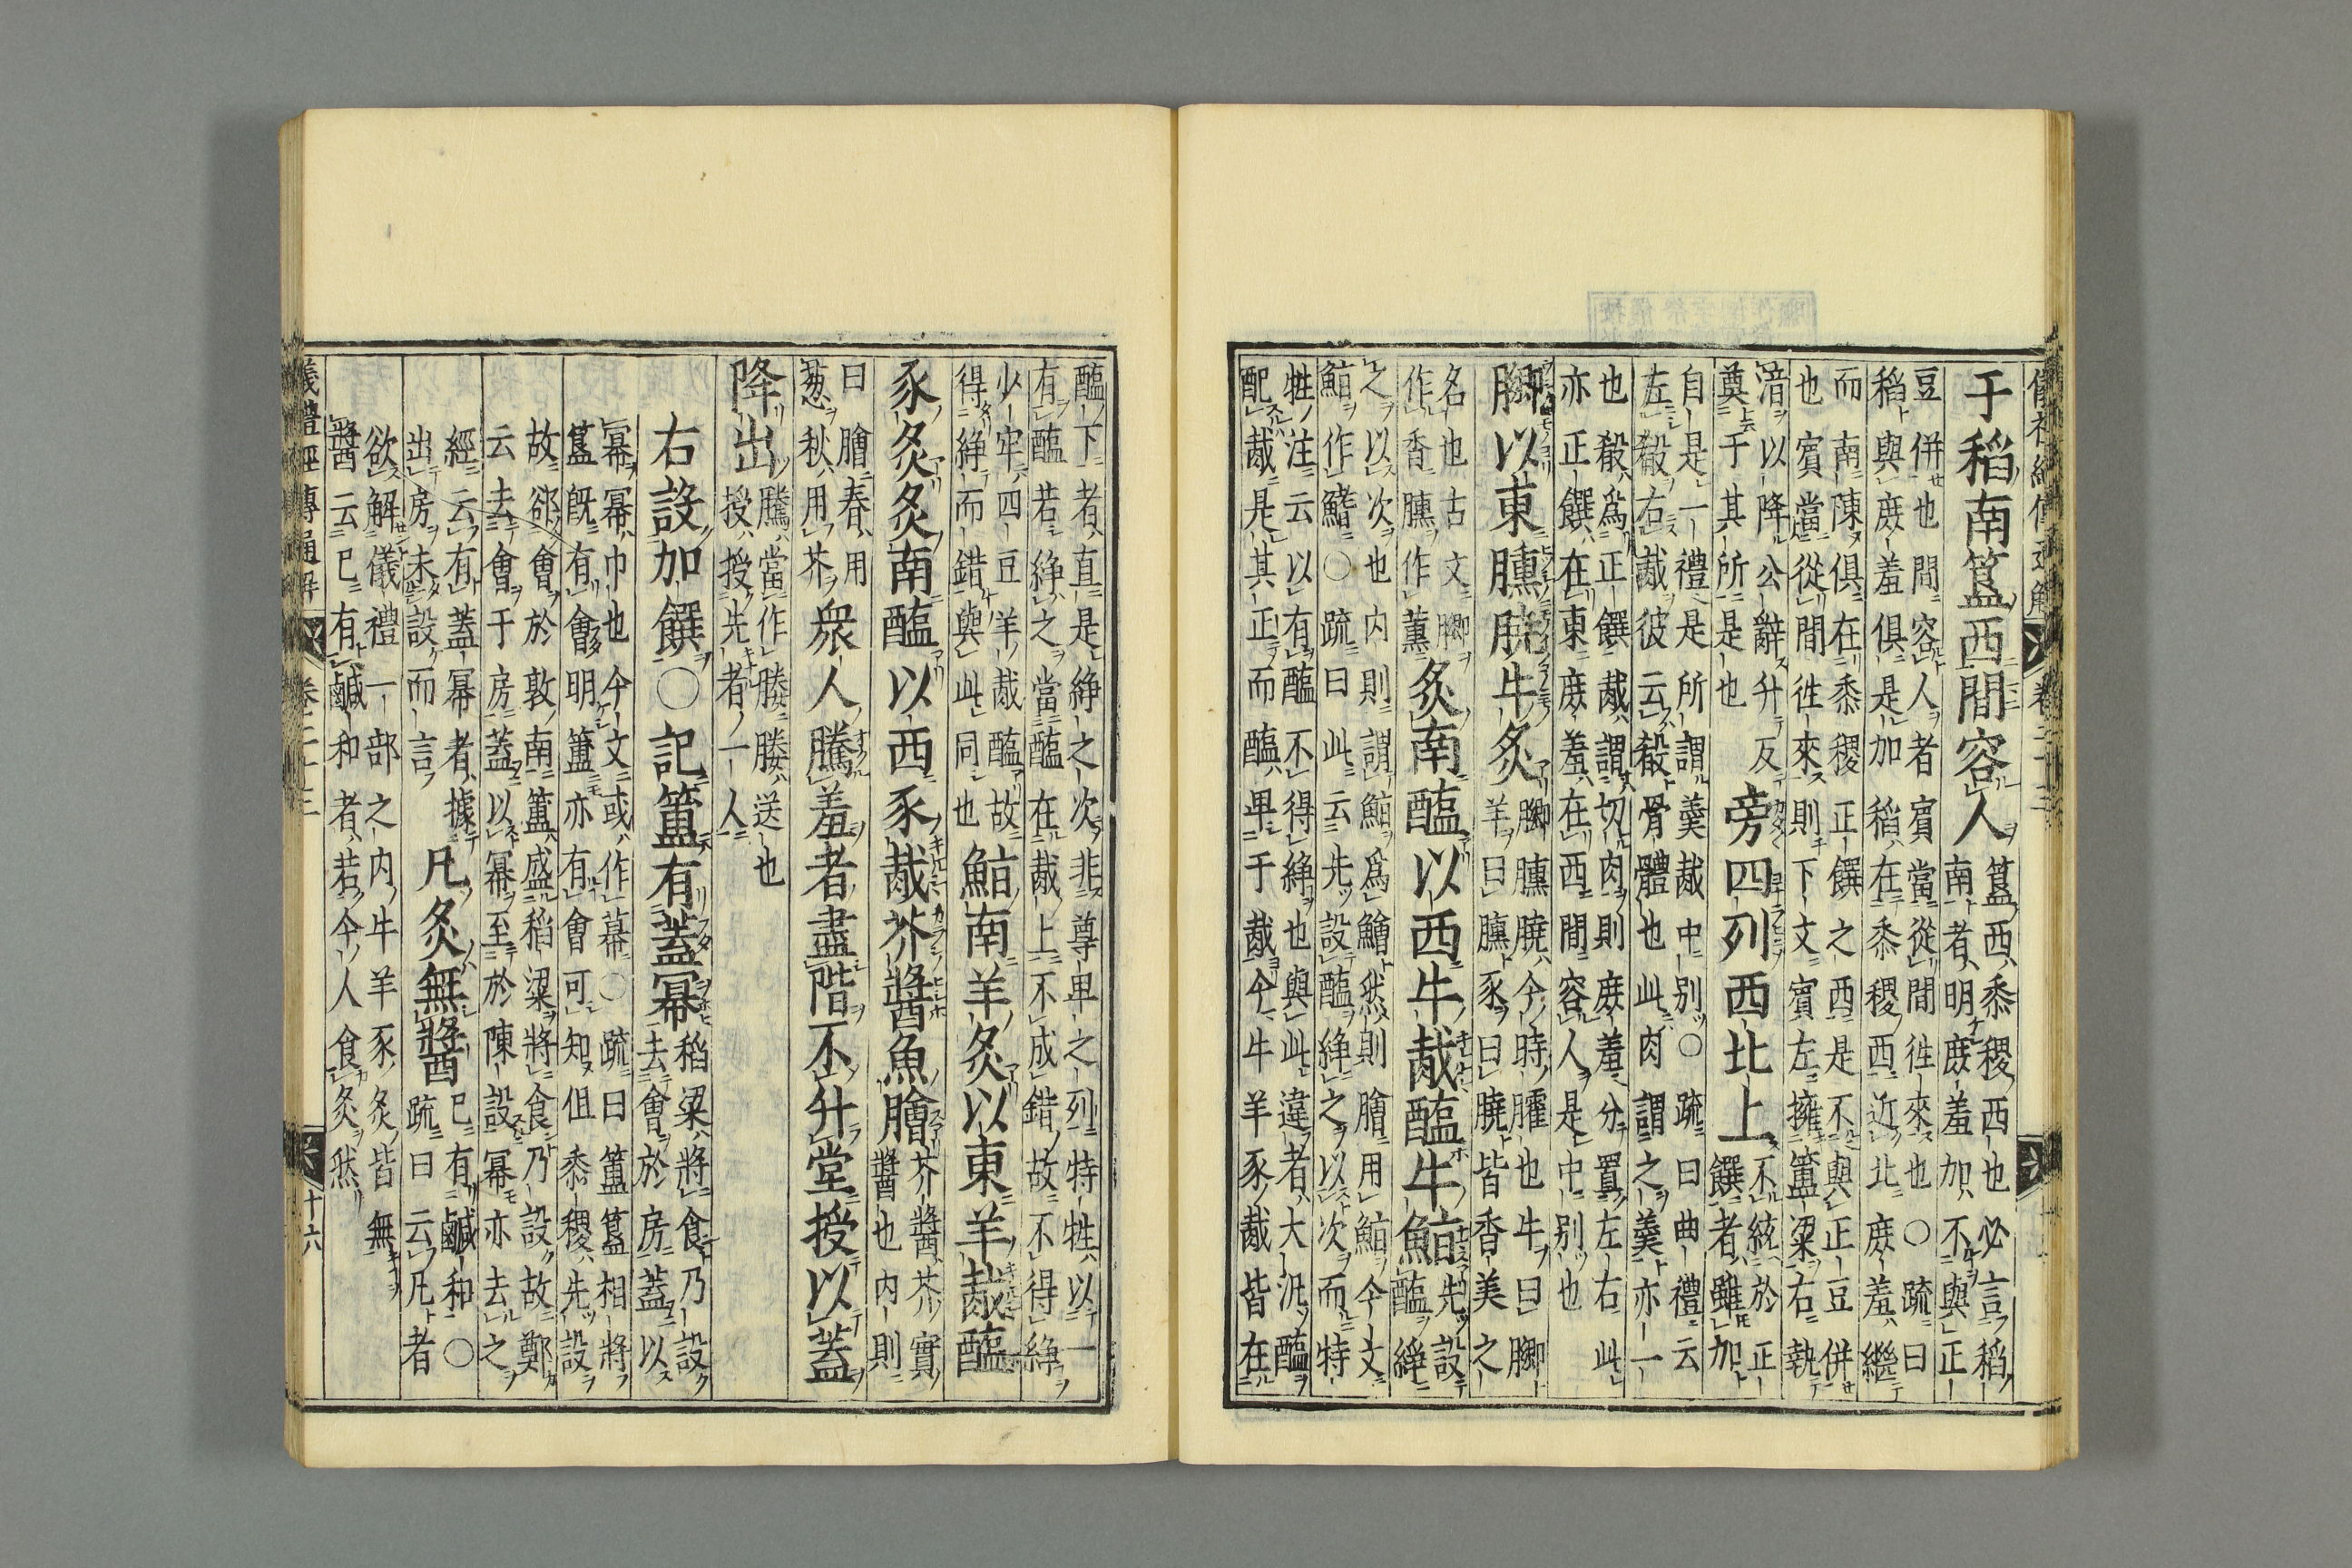 儀禮經傳通解 卷二十三
于稻南簋西間容人
簋西黍稷西也必言稻
南者明庶羞加不與正
豆併也間容人者賓當從間徃來也○疏曰
稻與庶羞俱是加稻在黍稷西近北庶羞繼
而南陳俱在黍稷正饌之西是不與正豆併
也賓當從間徃來則下文賓左擁簠粱右執
湆以降公辭升反
奠于其所是也
旁四列西北上
不統於正
饌者雖加
自是一禮是所謂羹胾中別○疏曰曲禮云
左殽右胾彼云殽骨體也此肉謂之羹亦一
也殽爲正饌胾謂切肉則庶羞分置左右此
亦正饌在東庶羞在西間容人是中別也
膷以東臐膮牛炙
膷臐膮今時臛也牛曰膷
羊曰臐豕曰膮皆香美之
名也古文膷
作香臐作薰
炙南醢以西牛胾醢牛鮨
先設
醢綪
之以次也内則謂鮨爲鱠然則膾用鮨今文
鮨作鰭○疏曰此云先設醢綪之以次而特
牲注云以有醢不得綪也與此違者大汎醢
配胾是其正而醢卑于胾今牛羊豕胾皆在
醢下者直是綪之次非尊卑之列特牲以一
有醢若綪之當醢在胾上不成錯故不得綪
少牢四豆羊胾醢故
得綪而錯與此同也
鮨南羊炙以東羊胾醢
豕炙炙南醢以西豕胾芥醬魚膾
芥醬芥實
醬也内則
曰膾春用
葱秋用芥
衆人騰羞者盡階不升堂授以蓋
降出
騰當作媵媵送也
授授先者一人
右設加饌○記簠有蓋冪
稻粱將食乃設
去會於房蓋以
冪冪巾也今文或作幕○疏曰簠簋相將
簋既有會明簠亦有會可知但黍稷先設
故郤會於敦南簠盛稻粱將食乃設故鄭
云去會于房蓋以冪至於陳設冪亦去之
經云有蓋冪者據
出房未設而言
凡炙無醬
已有鹹和○
疏曰云凡者
欲解儀禮一部之内牛羊豕炙皆無
醬云已有鹹和者若今人食炙然
儀禮經傳通解 卷二十三 十六